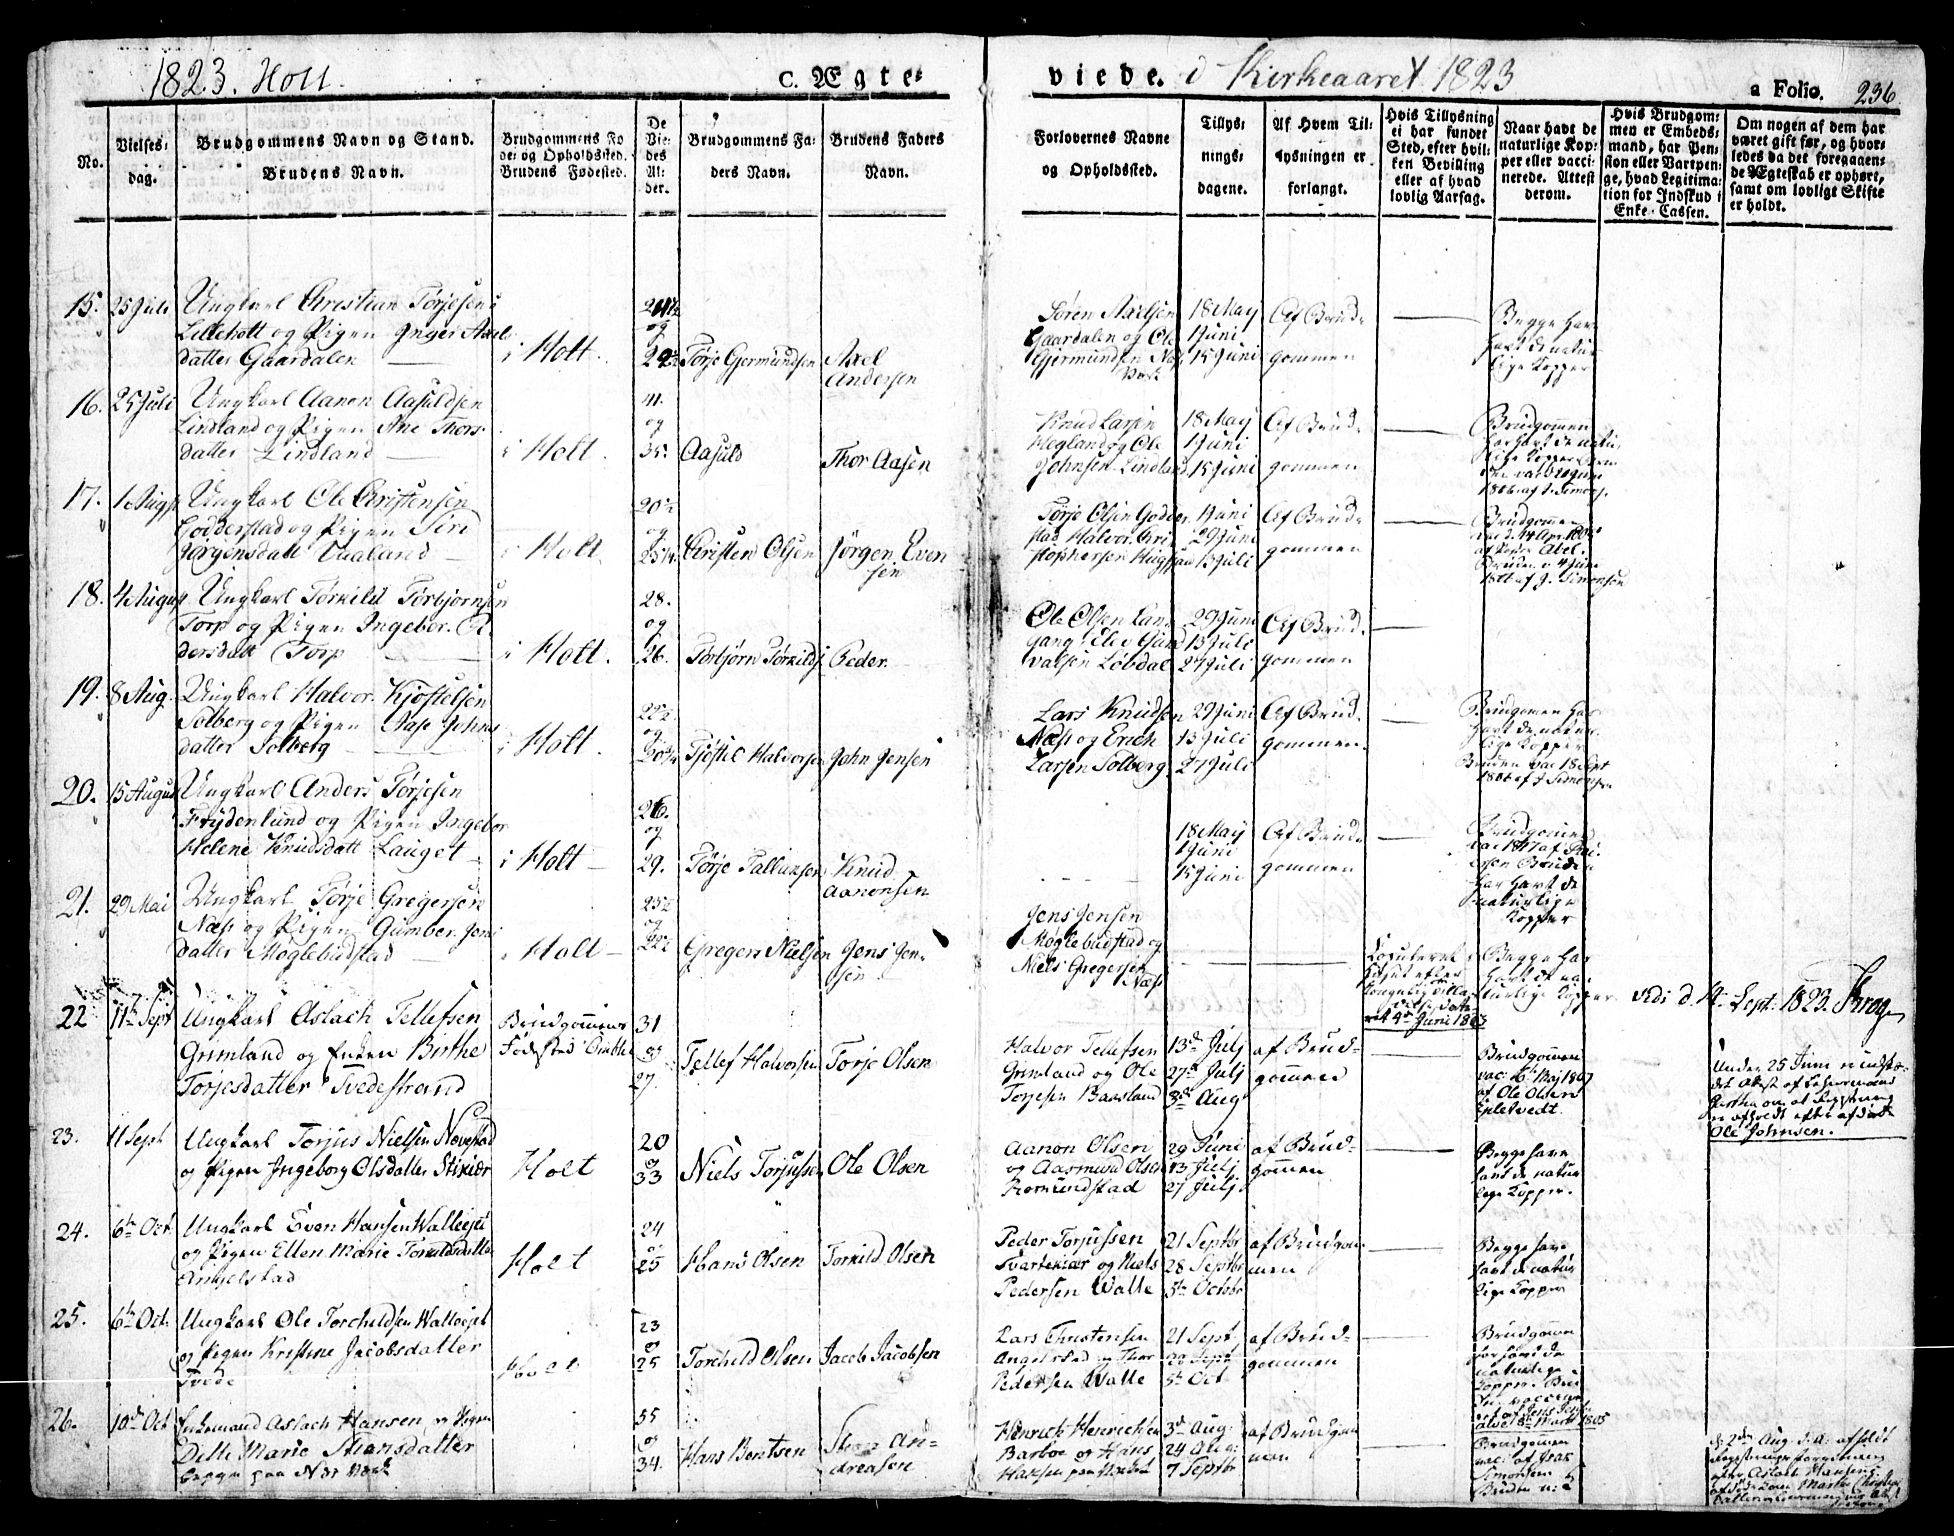 1823. Holt.
C. Ægte-
viede. i Kirkeaaret 1823
a Folio. 236
No.
Vielses-
dag.
Brudgommens Navn og Stand.
Brudens Navn.
Brudgommens Fø
de- og Opholdssted.
Brudens Fødested.
De
Vie-
des
Al-
der.
Brudgommens Fa-
ders Navn.
Brudens Faders
Navn.
Forlovernes Navne
og Opholdssted.
Tillys-
nings-
dagene.
Af Hvem Til-
lysningen er
forlangt.
Hvis Tillysning
ei har fundet
Sted, efter hvil-
ken Bevilling
eller af hvad
lovlig Aarsag.
Naar havt de
naturlige Kop-
per eller vacci-
nerede. Attest
derom.
Hvis Brudgom-
men er Embeds-
mand, har Pen-
sion eller Vartpen-
ge, hvad Legitima-
tion for Indskud i
Enke-Cassen.
Om nogen af dem har
været gift før, og hvor-
ledes da det foregaaen-
de Ægteskab er ophørt,
samt om lovligt Skifte
er holdt.
15. 25 Juli
Ungkarl Christian Tørjesen
Lilleholt og Pigen Inger Axel
datter Gaardalen
i Holt.
og
Tørje Gjermundsen
Axel
Andersen
Søren Axelsen
Gaardalen og Ole
Gjermundsen Næs
Værk
18 May
1 Juni
15 Juni
Af Brud-
gommen
Begge har
havt de natur
lige Kopper
16. 25 Juli
Ungkarl Aanon Aasuldsen
Lindland og Pigen Ane Thors-
datter Lindland
i Holt.
41.
og
35.
Aasuld
Thor Aasen
Knud Larsen
Hegland og Ole
Johnsen Lindland
18 May
1 Juni
15 Juni
Af Brud-
gommen
Brudgommen
har havt de natur
lige Kopper
1806. af J. Simons.
17. 1 August
Ungkarl Ole Christensen
Godderstad og Pigen Siri
Jørgensdatt Vualand
i Holt
og
Christen Olsen
Jørgen Even
sen
Tørje Olsen Godder
stad Halvor Cri
stophersen
1 Juni
29 Juni
13 Juli
Af Brud-
gommen
Brudgommen
af Abel.
Bruden d. 4 Juni
af J. Simonsen
18. 4 August
Ungkarl Tørkild Tørbjørnsen
Torp og Pigen Ingebor. Pe
dersdatt Torp
i Holt.
28.
og
26.
Tørbjørn Tørkilds.
Peder.
Ole Olsen Lan
gang. Elev Gund
valsen Løbdal
29 Juni
13 Juli
27 Juli
Af Brud-
gommen
19. 8 Aug.
Ungkarl Halvor Kjøstelsen
Solberg og Pigen Aase Johns
datter Solberg
i Holt.
og
Tjøstil Halvorsen
John Jensen
Lars Knudsen
Næs og Erich
Larsen Solberg
29 Juni
13 Juli
27 Juli
Af Brud-
gommen.
Brudgomen har
havt de natur
lige Kopper
Bruden vac 18 Sept
1806 af J Simonsen
20. 15 August
Ungkarl Anders Tørjesen
Frydenlund og Pigen Ingebor
Helene Knudsdatt Lauget
i Holt
26.
og
29.
Tørje Tallaksen
Knud
Aanonsen
18 May
1 Juni
15 Juni
Af Brud-
gommen
Brudgomen
Bruden
har havt de
naturlige
Kopper
21. 29 Mai
Ungkarl Tørje Gregersen
Næs og Pigen Gumber. Jens
datter Møglebudstad
i Holt
og
Gregers Nielsen
Jens Jen-
sen
Jens Jensen
Møglebudstad og
Niels Gregersen
Næs
Copuleret i
Huset efter
Kongelig Tilla-
4de Juni 18
Begge har
havt de na-
turlige Kopper
Vidi d. 14. Sept. 1823. Krog
22 11te Sept
Ungkarl Aslach Tellefsen
Grimland og Enken Birthe
Torjesdatter Tvedestrand
Brudgommens
Fødested Omblie
31
og
27.
Tellef Halvorsen
Torje Olsen
Halvor Tellefsen
Grimland og Ole
Torjesen Baasland
13de Julj
27de Julj
3de Aug
af Brud-
gommen
Brudgommen
vac: 16 Maj 1807
af Ole Olsen
Egelvedt.
Under 25 Juni er indsen-
det Attest af
er afholdt efter afdøde
Ole Johnsen.
23. 11 Sept
Ungkarl Torjus Nielsen Nævestad
og Pigen Ingeborg Olsdatter Stikiær
Holt
20
og
33
Niels Torjussen
Ole Olsen
Aanon Olsen
og Aasmund Olsen
Romundstad
29 Juni
13 Julj
27 Julj
af Brud-
gommen
Begge have
havt de natur
lige Kopper.
24. 6te Oct.
Ungkarl Even Hansen Walleejet
og Pigen Ellen Marie Torkildsdatter
Angelstad
Holt
24
og
25
Hans Olsen
Torkild Olsen
Peder Torjussen
Svartekiær og Niels
Pedersen Walle
21 Septbr
28 Septbr
5te Octobr
af Brudgom-
men
Begge have
havt de natur
lige Kopper
25. 6te Oct.
Ungkarl Ole Torchildsen Walleejet
og Pigen Kristine Jacobsdatter
Tvede
Holt
23
og
25
Torchild Olsen
Jacob Jacobsen
Lars Christensen
Angelstad og Thor
Pedersen Walle
21 Sept.
28 Sept
5te Oct
af Brud-
gommen
Brudgommen
har havt de
naturlige
Kopper. Bru
den vaccine
ret af Jens
1805
26. 10de Oct
Enkemand Aslach Hansen og Pigen
Ditte Marie Steensdatter
begge paa Næs Værk
55
og
34.
Hans Bentsen
Steen An-
dreasen
Henrich Henrichsen
Barboe og Hans
Hansen paa Værket
3de Aug:
24 Aug:
7 Septbr
af Brudgom
men
Brudgommen
vac: af Isak
Simonsen
Bruden
d. 2den Aug. d. A. afholdt
efter Aslach Hansens